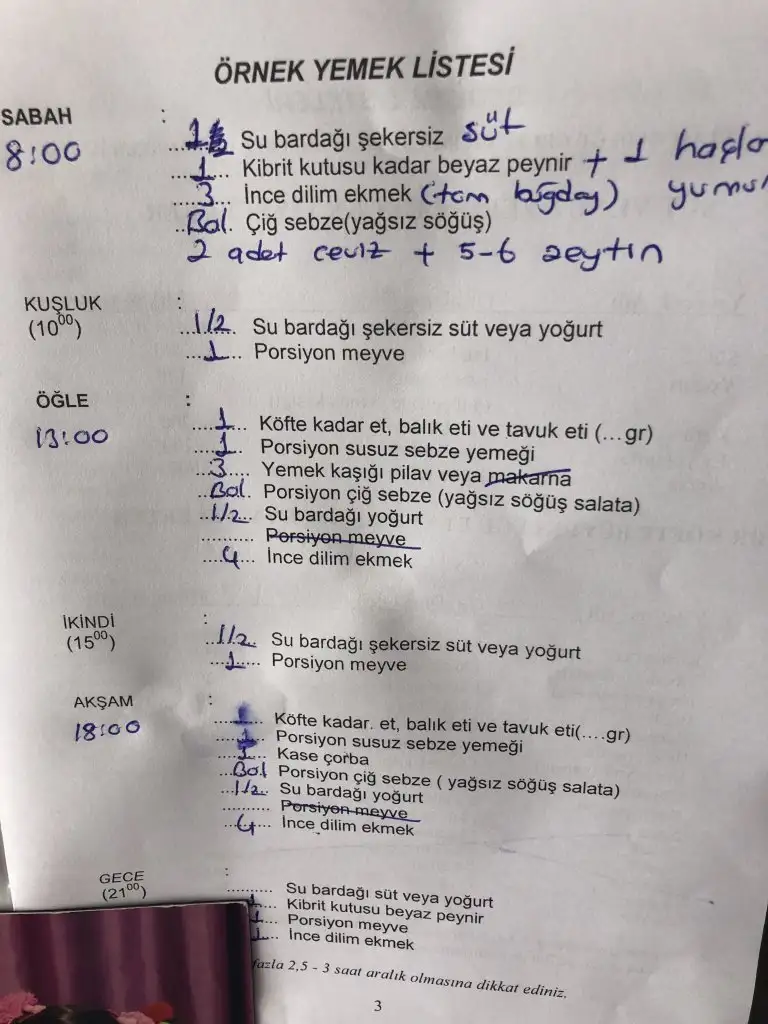 ÖRNEK YEMEK LİSTESİ
SABAH :
8:00
1 Su bardağı şekersiz süt
...1... Kibrit kutusu kadar beyaz peynir + 1 haşla
...3... İnce dilim ekmek (tam buğday) yumur
..Bol. Çiğ sebze(yağsız söğüş)
2 adet ceviz + 5-6 zeytin
KUŞLUK :
(10⁰⁰)
...1/2... Su bardağı şekersiz süt veya yoğurt
...1... Porsiyon meyve
ÖĞLE :
13:00
...1... Köfte kadar et, balık eti ve tavuk eti (...gr)
...1... Porsiyon susuz sebze yemeği
...3.... Yemek kaşığı pilav veya makarna
..Bol. Porsiyon çiğ sebze (yağsız söğüş salata)
..1/2.. Su bardağı yoğurt
.......... Porsiyon meyve
....4... İnce dilim ekmek
İKİNDİ :
(15⁰⁰)
..1/2.. Su bardağı şekersiz süt veya yoğurt
...1..... Porsiyon meyve
AKŞAM :
18:00
...1... Köfte kadar. et, balık eti ve tavuk eti(....gr)
...1... Porsiyon susuz sebze yemeği
...1... Kase çorba
..Bol Porsiyon çiğ sebze ( yağsız söğüş salata)
...1/2.. Su bardağı yoğurt
.......... Porsiyon meyve
...4... İnce dilim ekmek
GECE :
(21⁰⁰)
.......... Su bardağı süt veya yoğurt
1.... Kibrit kutusu beyaz peynir
1.... Porsiyon meyve
1... İnce dilim ekmek
fazla 2,5 - 3 saat aralık olmasına dikkat ediniz.
3